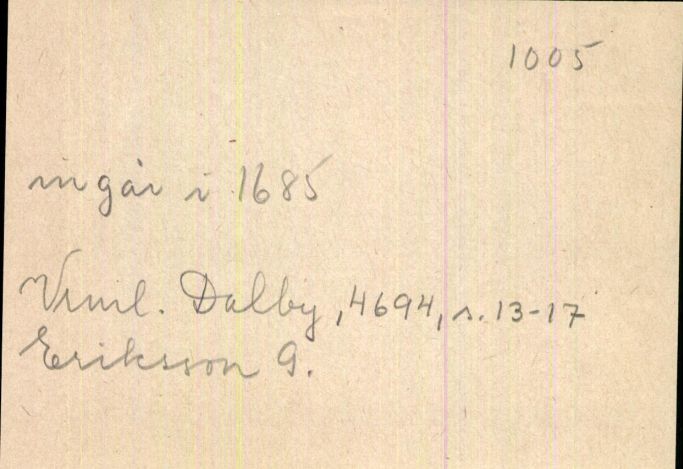 1005
ingår i 1685
Vrml. Dalby, 4694, s. 13-17
Eriksson G.